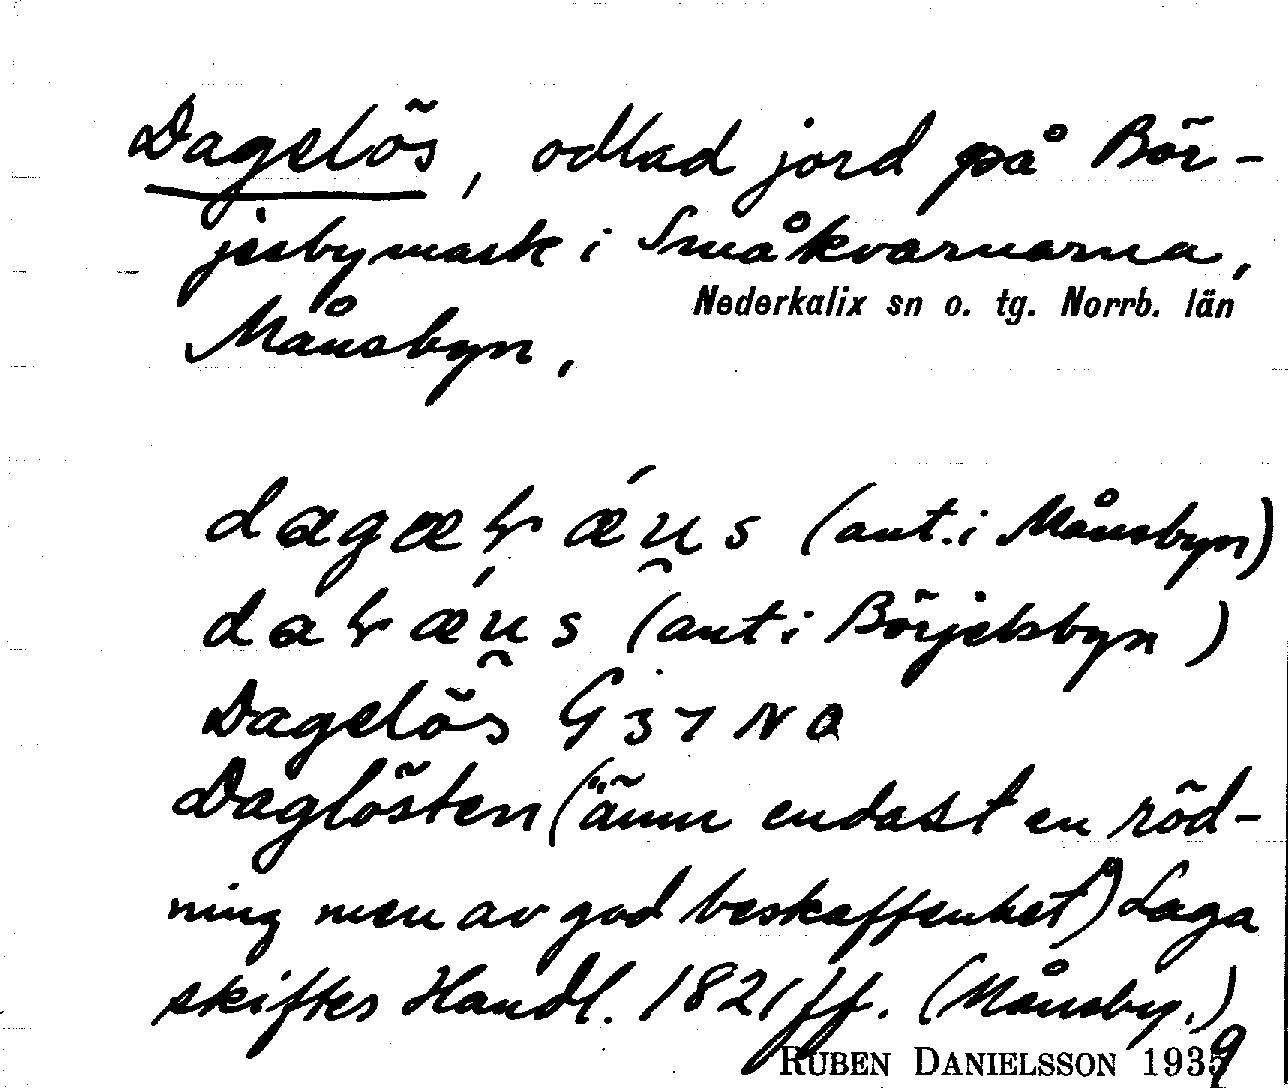 Dagelös, odlad jord på Bör-
jesbymark i Småkvarnarna,
Nederkalix sn o. tg. Norrb. län
Månsbyn.
(ant. i Månsbyn)
(ant i Börjelsbyn)
Dagelös G 37 N Q
Daglösten ("ännu endast en röd-
ning men av god beskaffenhet") Laga
skiftes Handl. 1821 ff. (Månsby.)
RUBEN DANIELSSON 1939